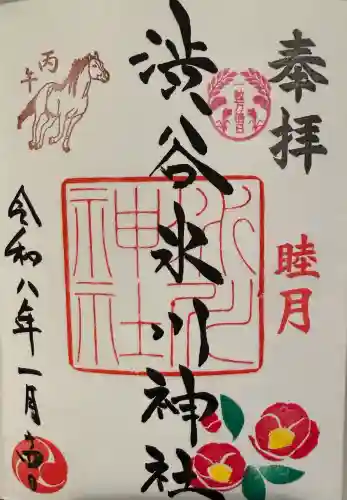 奉拝
睦月
一粒万倍日
渋谷氷川神社
丙午
令和八年一月十四日